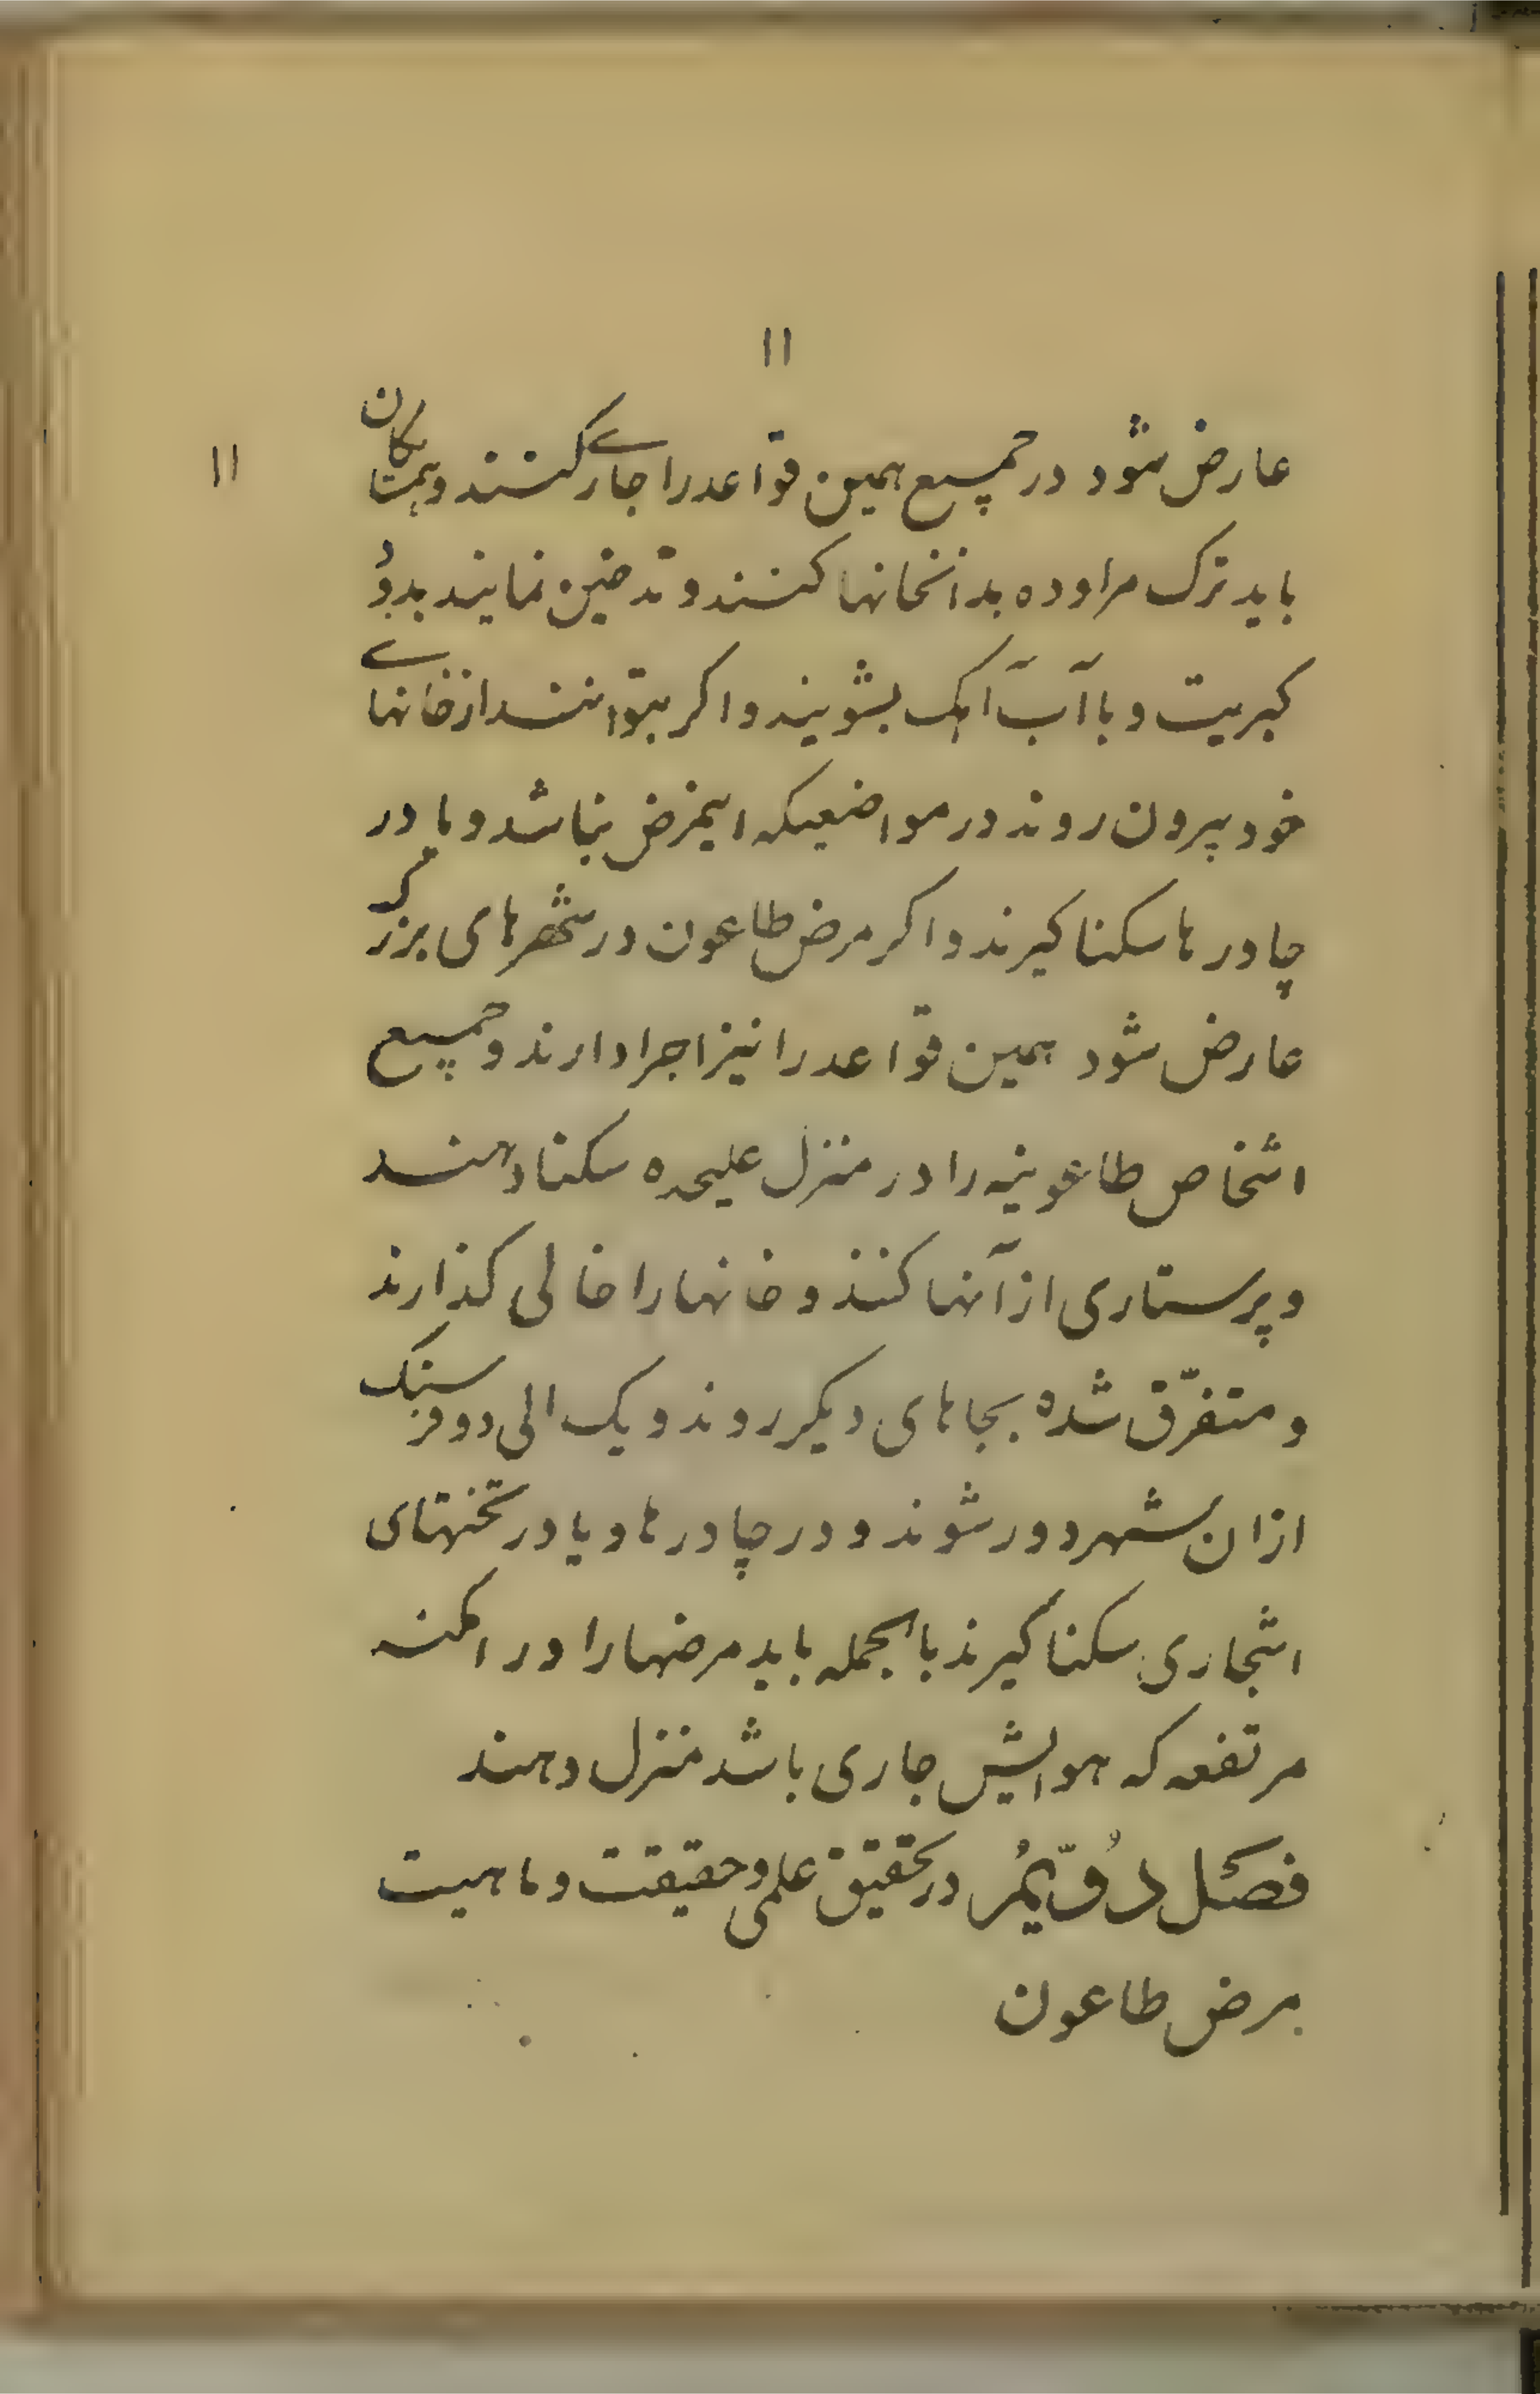 ۱۱
عارض شود در جمیع همین قواعد را جاری کنند و همتکان
۱۱
باید ترک مراوده بدانخانها کنند و تدخین نمایند بدود
کبریت و با آب آهک بشویند و اکر بتوانند از خانهای
خود بیرون روند در مواضعیکه اینمرض نباشد و یا در
چادرها سکنا کیرند و اکر مرض طاعون در شهرهای بزرک
عارض شود همین قواعد را نیز اجرا دارند و جمیع
اشخاص طاعونیه را در منزل علیحده سکنا دهند
و پرستاری از آنها کنند و خانها را خالی کذارند
و متفرّق شده بجاهای دیکر روند و یک الی دو فرسنک
از ان شهر دور شوند و در چادرها و یا در تختهای
اشجاری سکنا کیرند بالجمله باید مرضها را در امکنه
مرتفعه که هوایش جاری باشد منزل دهند
فصل دوّیم در تحقیق علمی و حقیقت و ماهیت
مرض طاعون